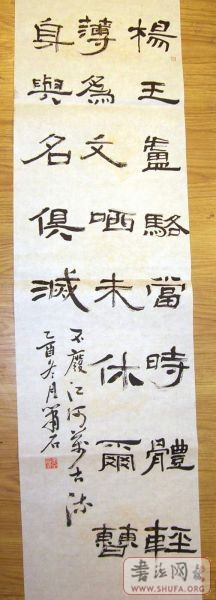 楊王盧駱當時體輕
薄為文哂未休爾曹
身與名俱滅
不廢江河萬古流
乙酉冬月石
WWW.SHUFA.ORG